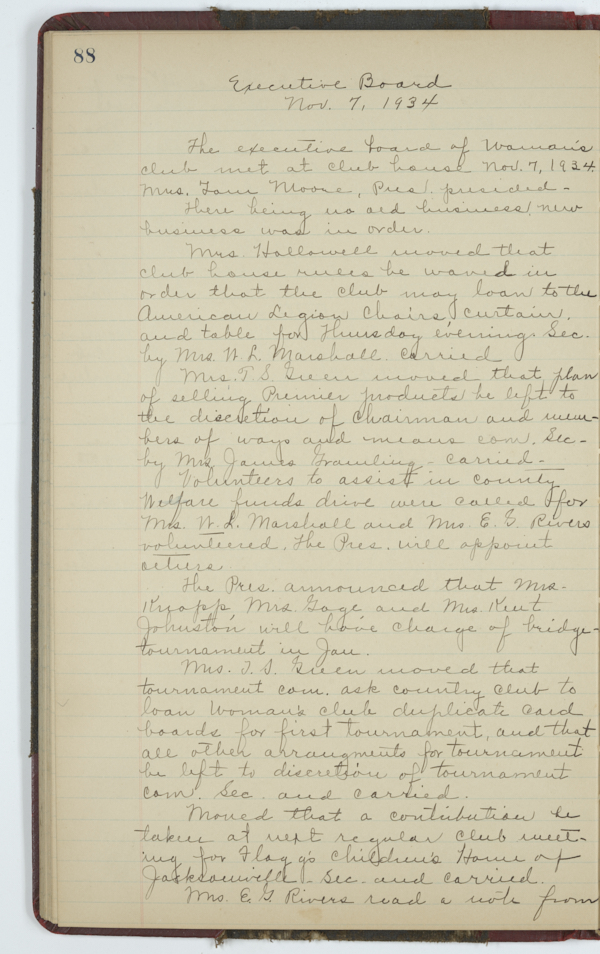 88
Executive Board
Nov. 7, 1934
The executive board of Woman's
club met at club house Nov. 7, 1934.
Mrs. Tom Moore, Pres. presided-
There being no old business, new
business was in order.
Mrs. Hallowell moved that
club house rules be waved in
order that the club may loan to the
American Legion Chairs, curtain,
and table for Thursday evening. Sec.
by Mrs. W. L. Marshall. Carried
Mrs. T. S. Green moved that plan
of selling Premier products be left to
the discretion of Chairman and mem-
bers of ways and means com. Sec-
by Mrs James Gramling - carried-
Volunteers to assist in county
Welfare funds drive were called for
Mrs. W. L. Marshall and Mrs. E. G. Rivers
volunteered. The Pres. will appoint
others.
The Pres. announced that Mrs.
Knapp, Mrs. Gage and Mrs. Kent
Johnston will have charge of bridge-
tournament in Jan.
Mrs. T. S. Green moved that
tournament com. ask country club to
loan Woman's club duplicate card
boards for first tournament, and that
all other arrangments for tournament
be left to discretion of tournament
com. Sec. and carried.
Moved that a contribution be
taken at next regular club meet-
ing for Flagg's Children's Home of
Jacksonville - Sec. and carried.
Mrs. E. G. Rivers read a note from